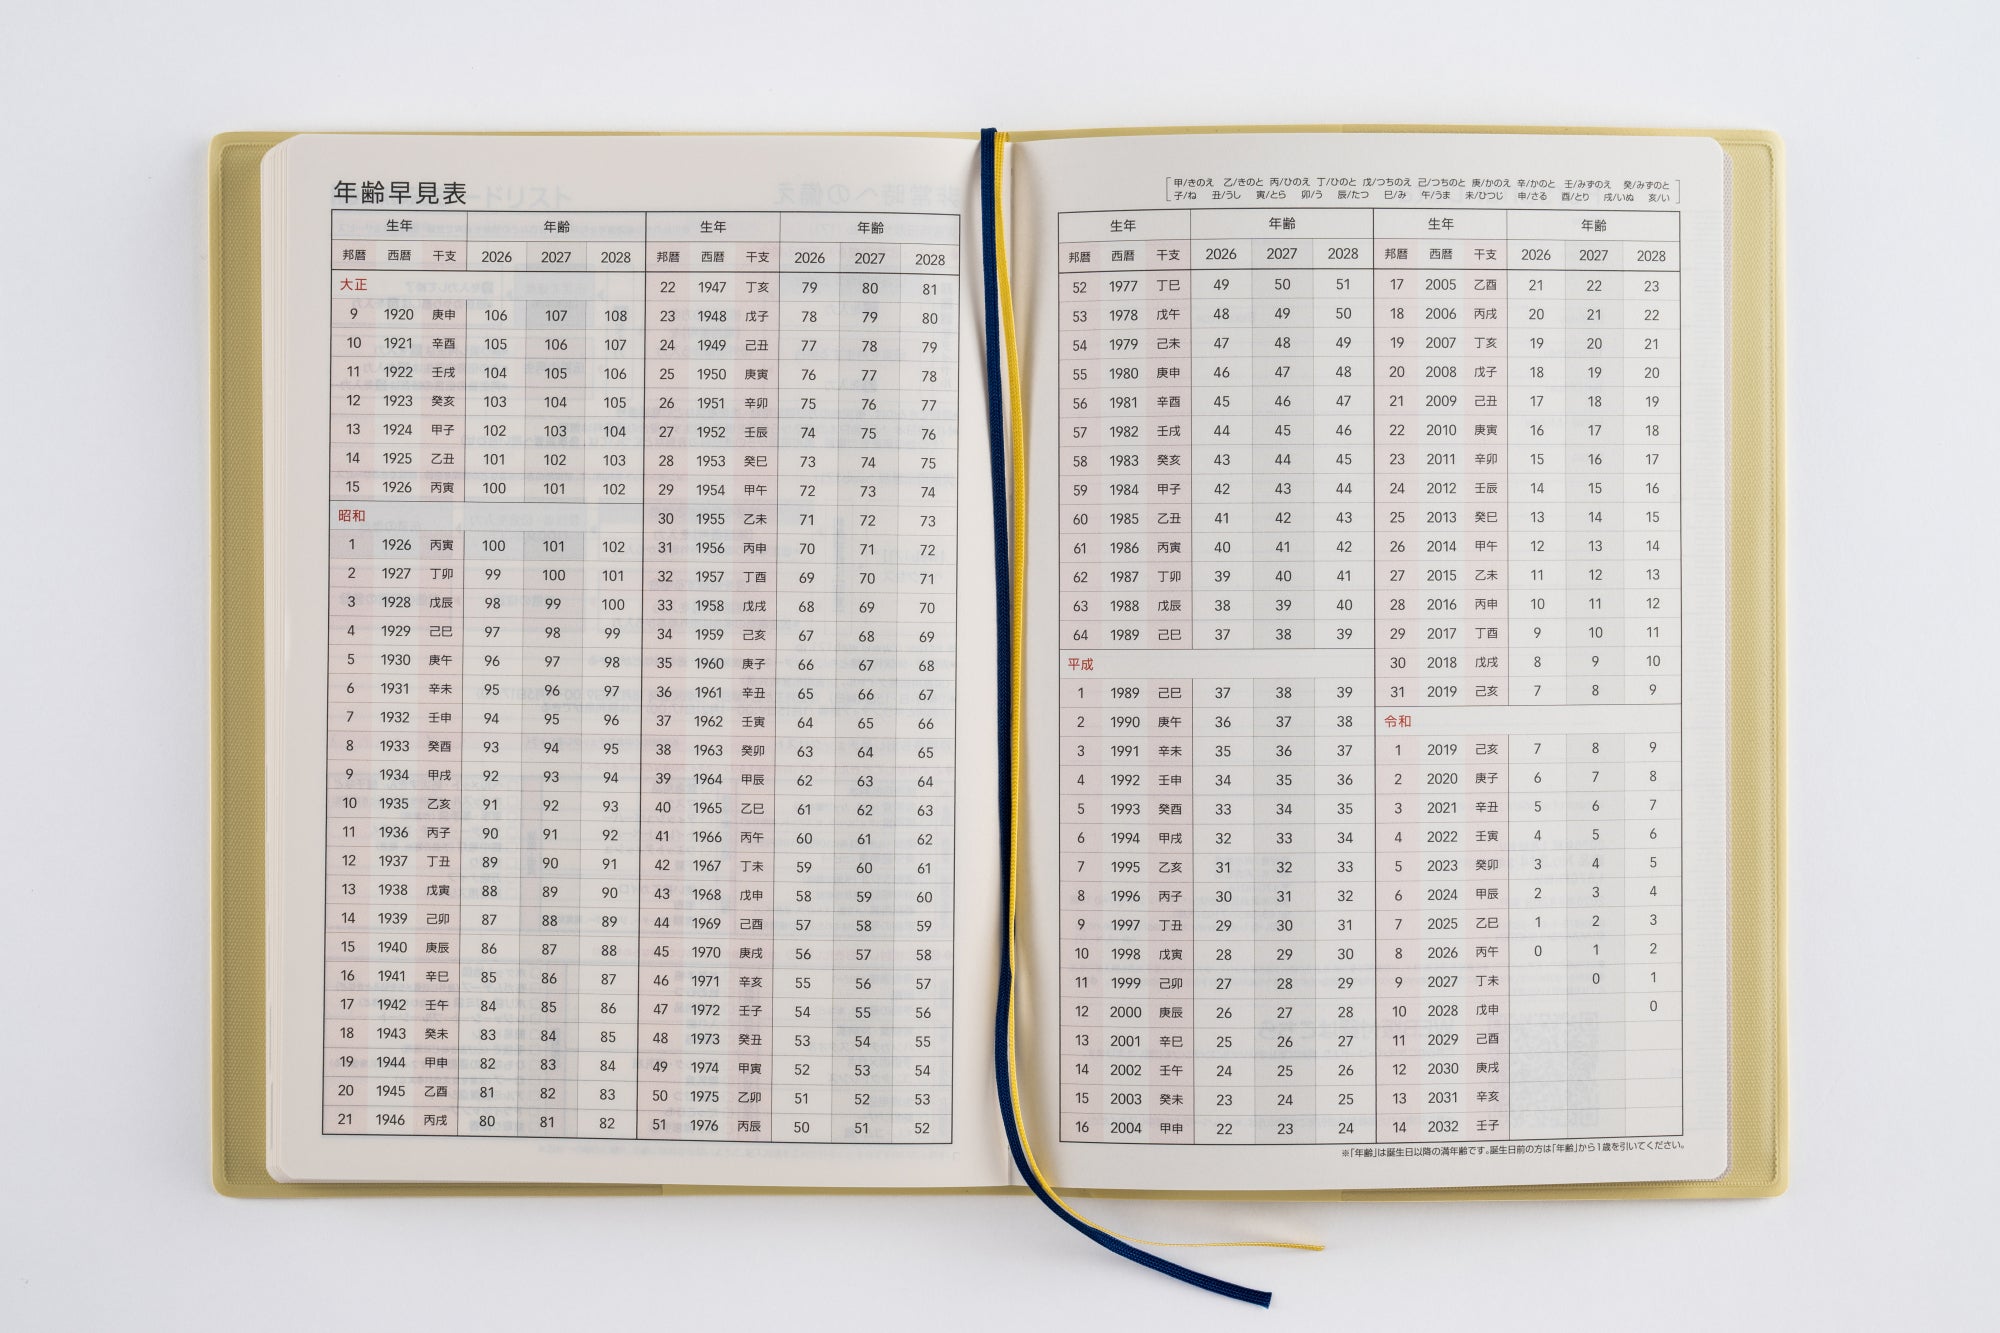 年齢早見表
生年 年齢 生年 年齢
邦暦 西暦 干支 2026 2027 2028 邦暦 西暦 干支 2026 2027 2028
大正 22 1947 丁亥 79 80 81
9 1920 庚申 106 107 108 23 1948 戊子 78 79 80
10 1921 辛酉 105 106 107 24 1949 己丑 77 78 79
11 1922 壬戌 104 105 106 25 1950 庚寅 76 77 78
12 1923 癸亥 103 104 105 26 1951 辛卯 75 76 77
13 1924 甲子 102 103 104 27 1952 壬辰 74 75 76
14 1925 乙丑 101 102 103 28 1953 癸巳 73 74 75
15 1926 丙寅 100 101 102 29 1954 甲午 72 73 74
昭和 30 1955 乙未 71 72 73
1 1926 丙寅 100 101 102 31 1956 丙申 70 71 72
2 1927 丁卯 99 100 101 32 1957 丁酉 69 70 71
3 1928 戊辰 98 99 100 33 1958 戊戌 68 69 70
4 1929 己巳 97 98 99 34 1959 己亥 67 68 69
5 1930 庚午 96 97 98 35 1960 庚子 66 67 68
6 1931 辛未 95 96 97 36 1961 辛丑 65 66 67
7 1932 壬申 94 95 96 37 1962 壬寅 64 65 66
8 1933 癸酉 93 94 95 38 1963 癸卯 63 64 65
9 1934 甲戌 92 93 94 39 1964 甲辰 62 63 64
10 1935 乙亥 91 92 93 40 1965 乙巳 61 62 63
11 1936 丙子 90 91 92 41 1966 丙午 60 61 62
12 1937 丁丑 89 90 91 42 1967 丁未 59 60 61
13 1938 戊寅 88 89 90 43 1968 戊申 58 59 60
14 1939 己卯 87 88 89 44 1969 己酉 57 58 59
15 1940 庚辰 86 87 88 45 1970 庚戌 56 57 58
16 1941 辛巳 85 86 87 46 1971 辛亥 55 56 57
17 1942 壬午 84 85 86 47 1972 壬子 54 55 56
18 1943 癸未 83 84 85 48 1973 癸丑 53 54 55
19 1944 甲申 82 83 84 49 1974 甲寅 52 53 54
20 1945 乙酉 81 82 83 50 1975 乙卯 51 52 53
21 1946 丙戌 80 81 82 51 1976 丙辰 50 51 52
甲/きのえ 乙/きのと 丙/ひのえ 丁/ひのと 戊/つちのえ 己/つちのと 庚/かのえ 辛/かのと 壬/みずのえ 癸/みずのと
子/ね 丑/うし 寅/とら 卯/う 辰/たつ 巳/み 午/うま 未/ひつじ 申/さる 酉/とり 戌/いぬ 亥/い
生年 年齢 生年 年齢
邦暦 西暦 干支 2026 2027 2028 邦暦 西暦 干支 2026 2027 2028
52 1977 丁巳 49 50 51 17 2005 乙酉 21 22 23
53 1978 戊午 48 49 50 18 2006 丙戌 20 21 22
54 1979 己未 47 48 49 19 2007 丁亥 19 20 21
55 1980 庚申 46 47 48 20 2008 戊子 18 19 20
56 1981 辛酉 45 46 47 21 2009 己丑 17 18 19
57 1982 壬戌 44 45 46 22 2010 庚寅 16 17 18
58 1983 癸亥 43 44 45 23 2011 辛卯 15 16 17
59 1984 甲子 42 43 44 24 2012 壬辰 14 15 16
60 1985 乙丑 41 42 43 25 2013 癸巳 13 14 15
61 1986 丙寅 40 41 42 26 2014 甲午 12 13 14
62 1987 丁卯 39 40 41 27 2015 乙未 11 12 13
63 1988 戊辰 38 39 40 28 2016 丙申 10 11 12
64 1989 己巳 37 38 39 29 2017 丁酉 9 10 11
平成 30 2018 戊戌 8 9 10
1 1989 己巳 37 38 39 31 2019 己亥 7 8 9
2 1990 庚午 36 37 38 令和
3 1991 辛未 35 36 37 1 2019 己亥 7 8 9
4 1992 壬申 34 35 36 2 2020 庚子 6 7 8
5 1993 癸酉 33 34 35 3 2021 辛丑 5 6 7
6 1994 甲戌 32 33 34 4 2022 壬寅 4 5 6
7 1995 乙亥 31 32 33 5 2023 癸卯 3 4 5
8 1996 丙子 30 31 32 6 2024 甲辰 2 3 4
9 1997 丁丑 29 30 31 7 2025 乙巳 1 2 3
10 1998 戊寅 28 29 30 8 2026 丙午 0 1 2
11 1999 己卯 27 28 29 9 2027 丁未 0 1
12 2000 庚辰 26 27 28 10 2028 戊申 0
13 2001 辛巳 25 26 27 11 2029 己酉
14 2002 壬午 24 25 26 12 2030 庚戌
15 2003 癸未 23 24 25 13 2031 辛亥
16 2004 甲申 22 23 24 14 2032 壬子
※「年齢」は誕生日以降の満年齢です。誕生日前の方は「年齢」から1歳を引いてください。